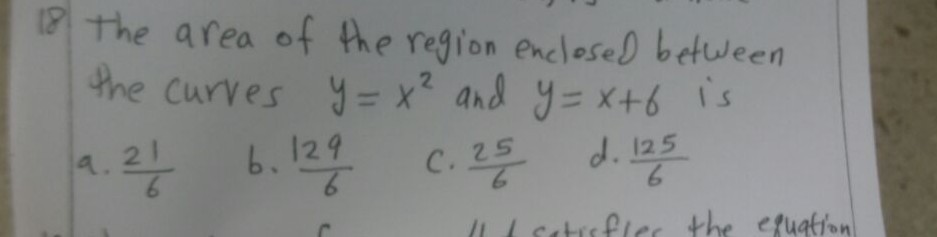 18 The area of the region enclosed between
the curves y = x² and y = x+6 is
a. 21/6 b. 129/6 c. 25/6 d. 125/6
satisfies the equation